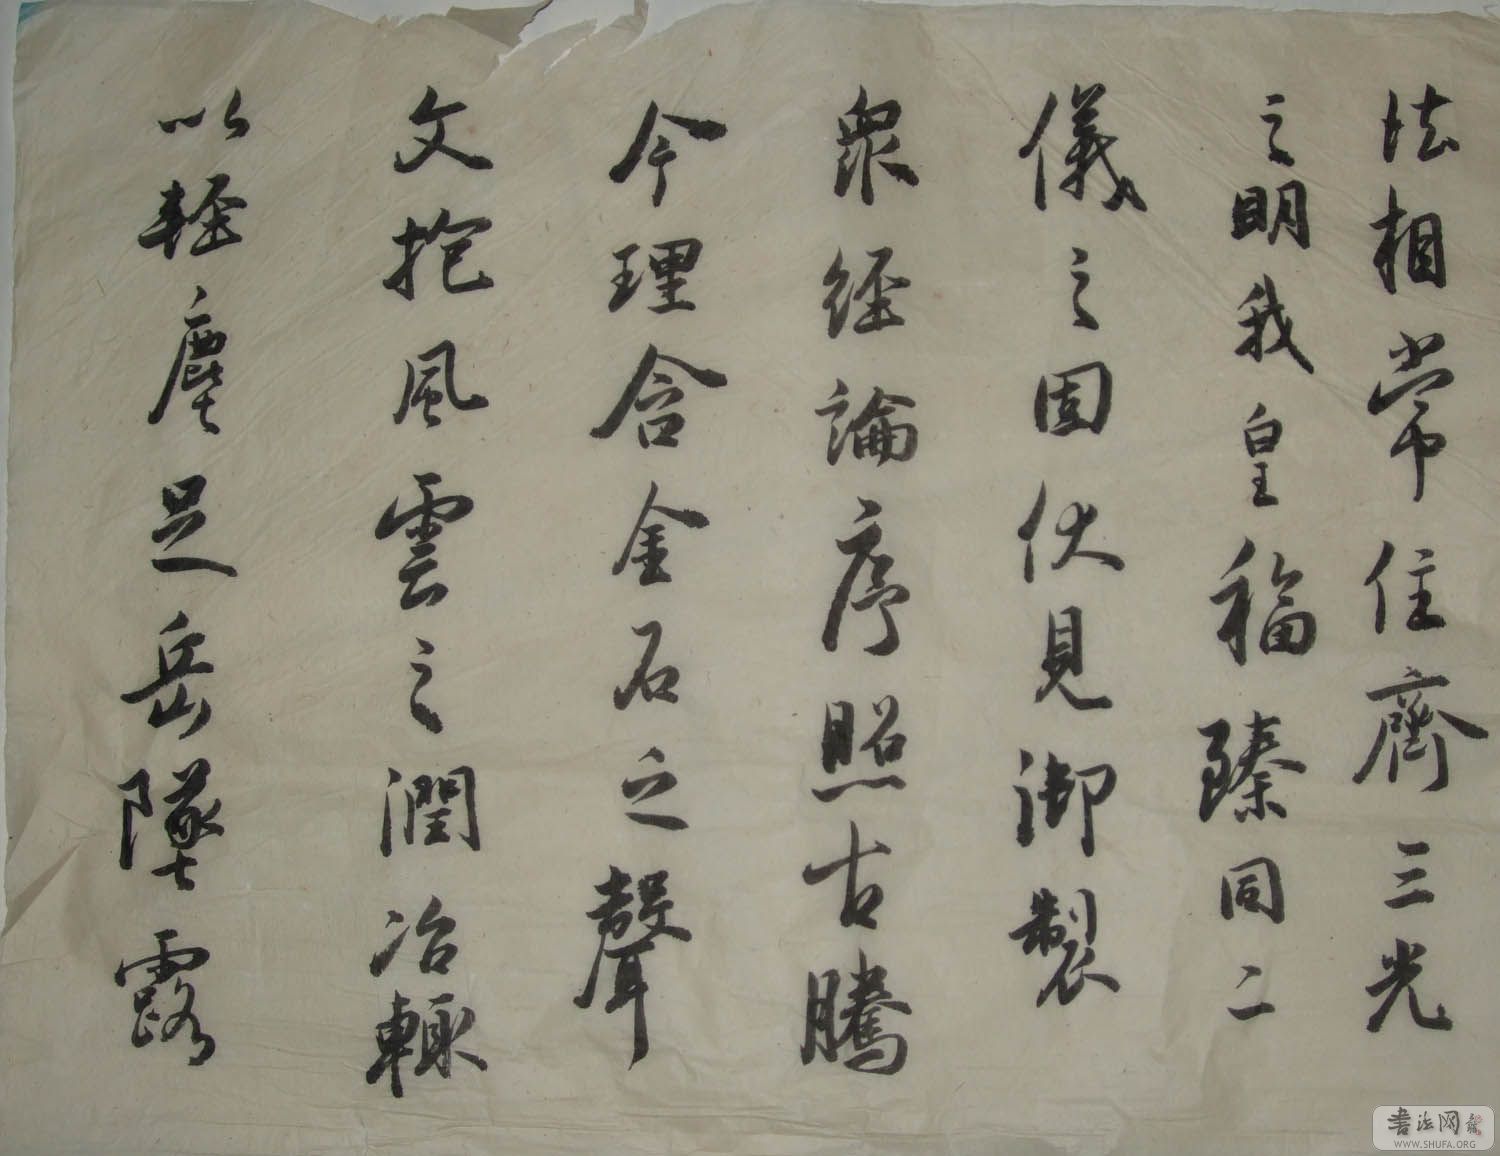 法相常住齊三光
之明我皇福臻同二
儀之固伏見御製
眾經論序照古騰
今理含金石之聲
文抱風雲之潤治輙
以輕塵足岳墜露
书法网
WWW.SHUFA.ORG